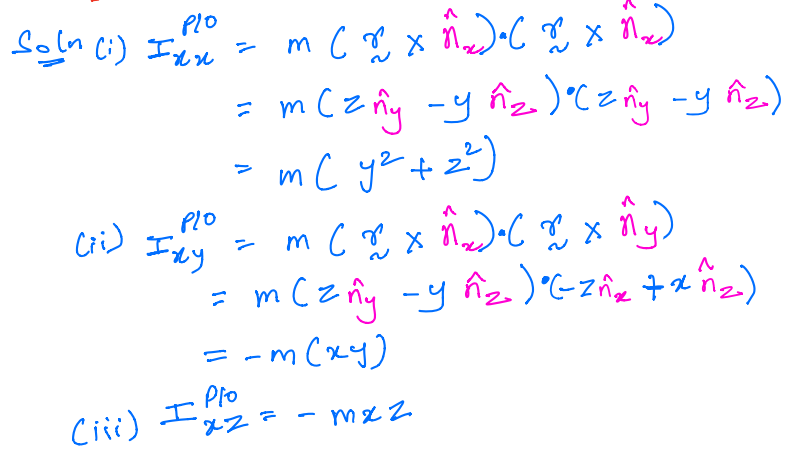 Soln (i) I_xx^P/O = m (r̰ × n̂_x)·(r̰ × n̂_x)
= m (z n̂_y - y n̂_z)·(z n̂_y - y n̂_z)
= m (y² + z²)
(ii) I_xy^P/O = m (r̰ × n̂_x)·(r̰ × n̂_y)
= m (z n̂_y - y n̂_z)·(-z n̂_x + x n̂_z)
= - m (xy)
(iii) I_xz^P/O = - m x z